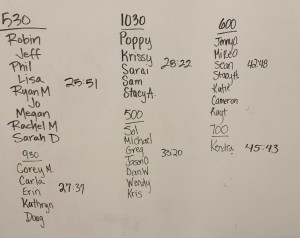 530
Robin
Jeff
Phil
Lisa 25:51
Ryan M
Jo
Megan
Rachel M
Sarah D
930
Corey M.
Carla
Erin 27:37
Kathryn
Doug
1030
Poppy
Krissy
Sarai 28:22
Sam
Stacy A.
500
Sol
Michael
Greg 35:20
Jason D
Dan W
Wendy
Kris
600
Jenny D
Mike O
Sean 42:48
Stacy H
Katie
Cameron
700
Kendra 45:43